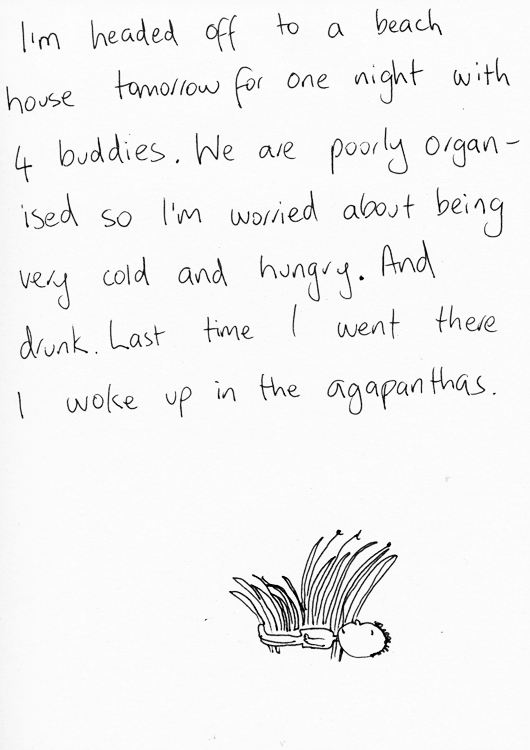 I'm headed off to a beach
house tomorrow for one night with
4 buddies. We are poorly organ-
ised so I'm worried about being
very cold and hungry. And
drunk. Last time I went there
I woke up in the agapanthas.